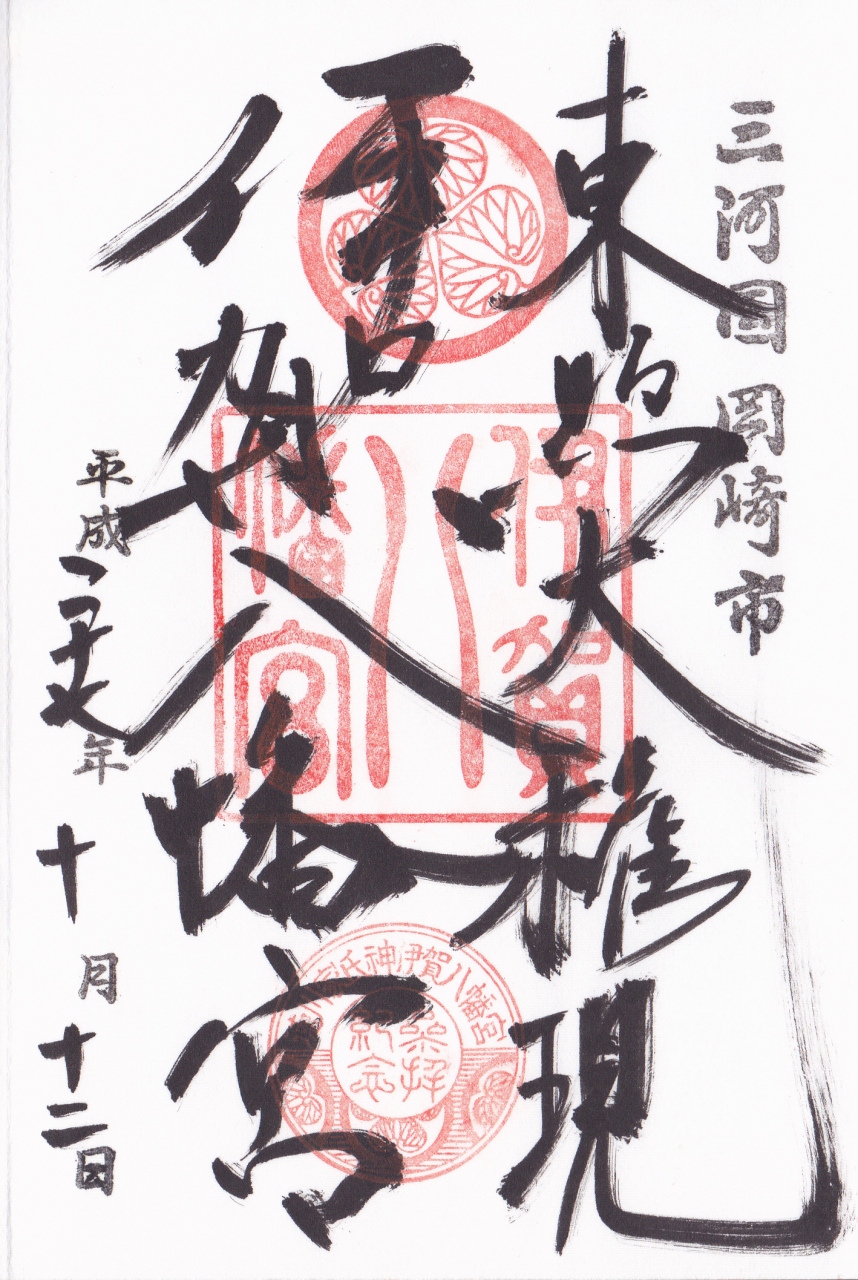 三河国 岡崎市
東照大権現
伊賀八幡宮
平成二十七年 十月 十二日
伊賀
八
幡宮
神祇
伊賀八幡宮
参拝
紀念